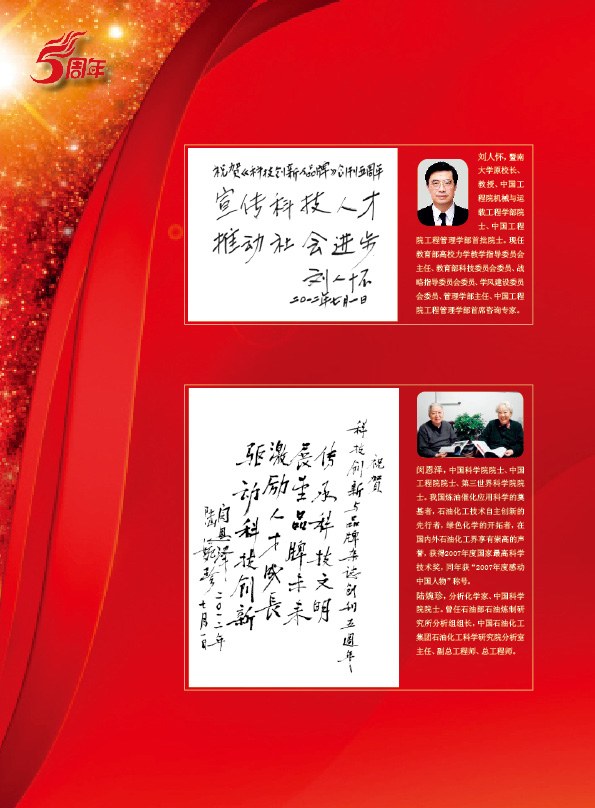 5周年
祝贺《科技创新与品牌》创刊五周年
宣传科技人才
推动社会进步
刘人怀
二〇一二年七月一日
刘人怀，暨南
大学原校长、
教授、中国工
程院机械与运
载工程学部院
士、中国工程
院工程管理学部首批院士。现任
教育部高校力学教学指导委员会
主任、教育部科技委员会委员、战
略指导委员会委员、学风建设委员
会委员、管理学部主任、中国工程
院工程管理学部首席咨询专家。
祝贺
科技创新与品牌杂志创刊五週年
传承科技文明
展望品牌未来
激励人才成长
驱动科技创新
闵恩泽
陆婉珍
二〇一二年
七月一日
闵恩泽，中国科学院院士、中国
工程院院士、第三世界科学院院
士。我国炼油催化应用科学的奠
基者，石油化工技术自主创新的
先行者，绿色化学的开拓者，在
国内外石油化工界享有崇高的声
誉。获得2007年度国家最高科学
技术奖，同年获“2007年度感动
中国人物”称号。
陆婉珍，分析化学家、中国科学
院院士。曾任石油部石油炼制研
究所分析组组长，中国石油化工
集团石油化工科学研究院分析室
主任、副总工程师、总工程师。